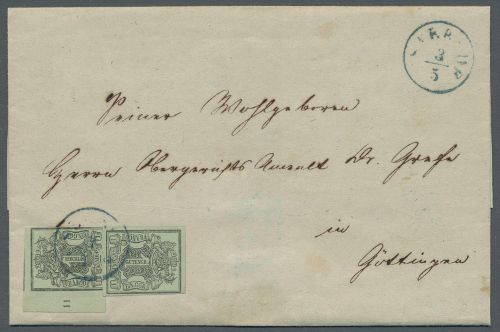 3/5
Seiner Wohlgeboren
Herrn Obergerichts Anwalt Dr. Grefe
in
Göttingen
11